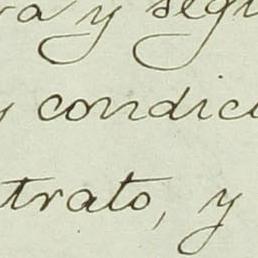 ra y segu
y condici
trato, y